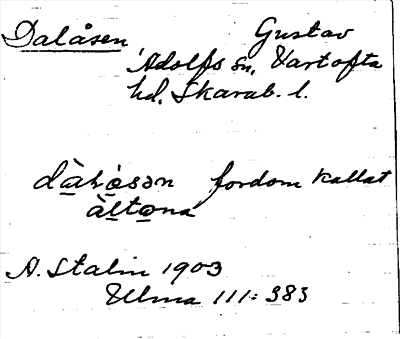 Dalåsen Gustav
Adolfs sn, Vartofta
hd, Skarab. l.
dàlåsən fordom kallat
àltona
A. Stalin 1903
Ulma 111: 383